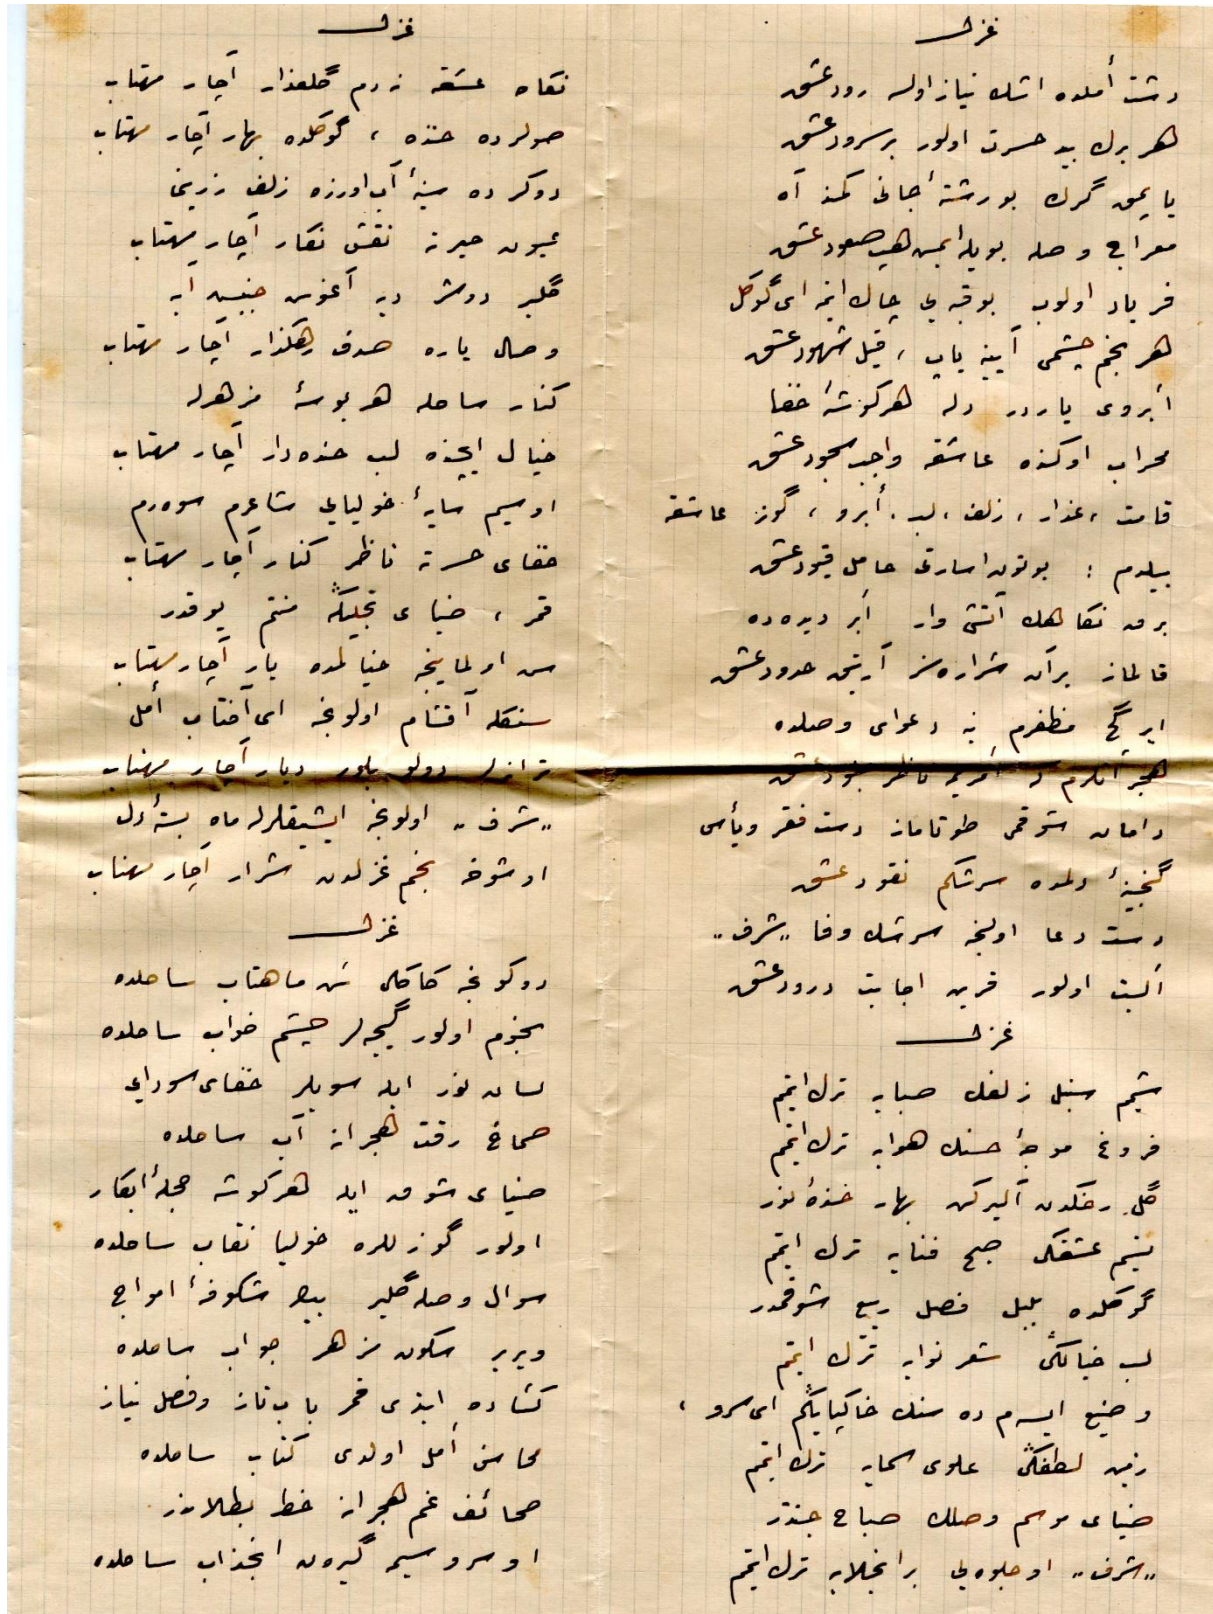 غزل
دشت أملده اشك نياز اولسه رود عشق
هر برك بيد حسرت اولور بر سرود عشق
يايمق گرك بو رشتهٔ جانى كمند آه
معراج وصله بويله ايمش هپ صعود عشق
فرياد اولوب بو قبه يى چاك ايتمه اى گوڭل
هر نجم چشمى آيينه ياپ ، قيل شهود عشق
أبروى ياردر دله هر گوشهٔ خفا
محراب اوكنده عاشقه واجب سجود عشق
قامت ، عذار ، زلف ، لب ، أبرو ، گوز عاشقه
بيلدم : بوتون اسارتى حامل قيود عشق
برق نگاهك آتشى وار أبر ديده ده
قالماز بر آن شراره سز آرتيق حدود عشق
ير گچ مظفرم ينه دعواى وصلده
هجر
دامان شوقمى طوتاماز دست فقر ويأس
گنجينهٔ دلمده سرشكم نقود عشق
دست دعا اولنجه سرشك وفا „شرف„
ألبت اولور قرين اجابت درود عشق
غزل
شميم سنبل زلفك صبايه ترك ايتمم
فروغ موجهٔ حسنك هوايه ترك ايتمم
گل رخكدن آليركن بهار خندهٔ نور
نسيم عشقكى صبح فنايه ترك ايتمم
گوڭلده بلبل فصل ربيع شوقمدر
لب خيالڭى شعر نوايه ترك ايتمم
وضيع ايسه م ده سنك خاكپايڭم اى سرو ،
زمين لطفڭى علوى سمايه ترك ايتمم
ضياى موسم وصلك صباح جنتدر
„شرف„ او جلوه يى بر انجلايه ترك ايتمم
غزل
نگاه عشقه زردم گلعذار آچار مهتاب
صولرده خنده ، گوڭلده بهار آچار مهتاب
دوكرده سينهٔ آب اوزره زلف زرينى
عيون حيرته نقش نگار آچار مهتاب
گلير دوشر ديه آغوش
وصال ياره صدف رهگذار آچار مهتاب
كنار ساحله هر بوسهٔ مزهرله
خيال ايچنده لب خنده دار آچار مهتاب
او سيم سايهٔ خوليايى شاعرم سوه رم
خفاى حسرته ناظر كنار آچار مهتاب
قمر ، ضياى تجليڭه منتم يوقدر
سن اولماينجه خيالمده يار آچار مهتاب
سنكله آقشام اولونجه اى آفتاب أمل
ترانه له دولو بللور ديار آچار مهتاب
„شرف„ اولونجه ايشيقلرله ماه بستهٔ دل
او شوخه نجم غزلدن شرار آچار مهتاب
غزل
دوكونجه كاكلى شن ماهتاب ساحلده
نجوم اولور گيجه لر چشم خواب ساحلده
لسان نور ايله سويلر خفاى سودايى
صماخ رقت هجرانه آب ساحلده
ضياى شوق ايله هر گوشه حجلهٔ ابكار
اولور گوزللره خوليا نقاب ساحلده
سوال وصله گلير بيڭ شكوفهٔ امواج
ويرير سكون مزهر جواب ساحلده
كشاده ايتدى قمر باب ناز وفصل نياز
محاسن أمل اولدى كتاب ساحلده
صحائف غم هجرانه خط بطلاندر
او سرو سيمه گيرن انجذاب ساحلده